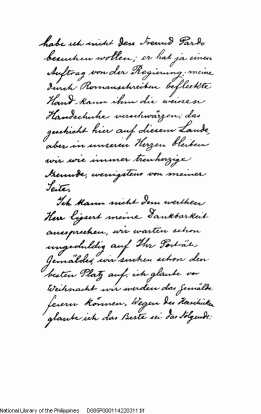 habe ich nicht den Freund Pardo
besuchen wollen; er hat ja einen
Auftrag von der Regierung; meine
durch Romanschreiben befleckte
Hand kann ihm die weissen
Handschuhe verschwärzen, das
geschieht hier auf diesem Lande,
aber in unseren Herzen bleiben
wir wie immer treuherzige
Freunde, wenigstens von meiner
Seite.
Ich kann nicht dem werthen
Herr meine Dankbarkeit
aussprechen, wir warten schon
ungeduldig auf Ihr Porträt
Gemälde, wir suchen schon den
besten Platz auf; ich glaube vor
Weihnacht wir werden das Gemälde
feiern können. Wegen des
glaube ich das Beste sei das Folgende:
National Library of the Philippines